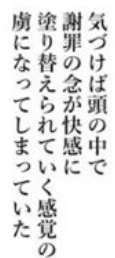 気づけば頭の中で
謝罪の念が快感に
塗り替えられていく感覚の
虜になってしまっていた